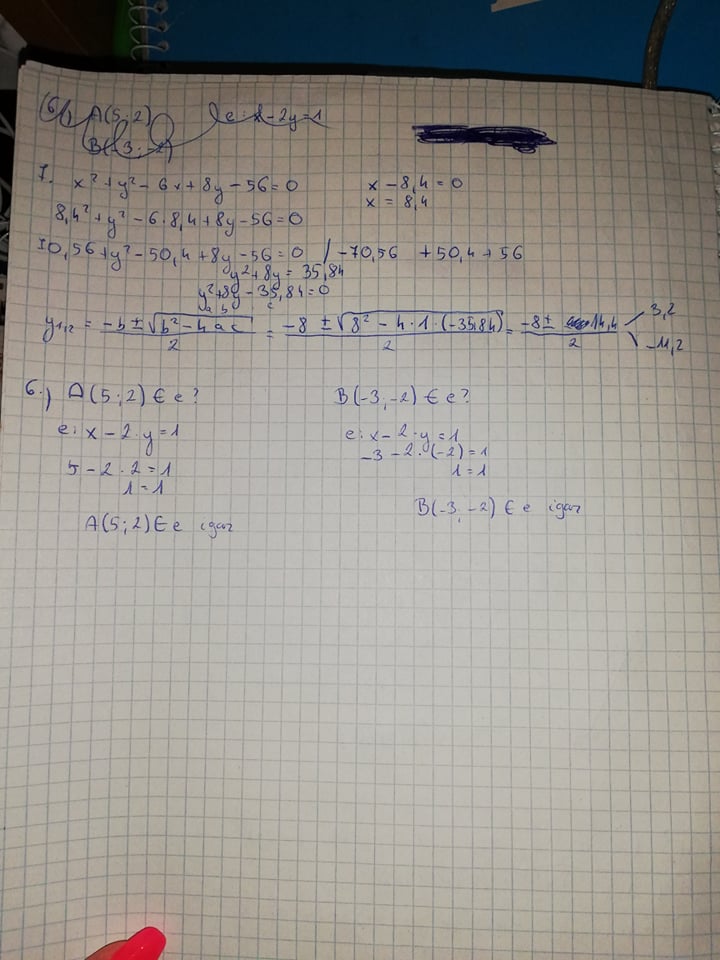 (6.) A(5;2) e: x-2y=1
B(-3;-2)
7. x²+y²-6x+8y-56=0 x-8,4=0
x=8,4
8,4²+y²-6·8,4+8y-56=0
70,56+y²-50,4+8y-56=0 /-70,56 +50,4+56
y²+8y=35,84
y²+8y-35,84=0
a b c
y1,2 = (-b±√(b²-4ac))/2 = (-8±√(8²-4·1·(-35,84)))/2 = (-8±14,4)/2 3,2
-11,2
6.) A(5;2)∈e? B(-3,-2)∈e?
e: x-2·y=1 e: x-2·y=1
5-2·2=1 -3-2·(-2)=1
1=1 1=1
A(5;2)∈e igaz B(-3,-2)∈e igaz